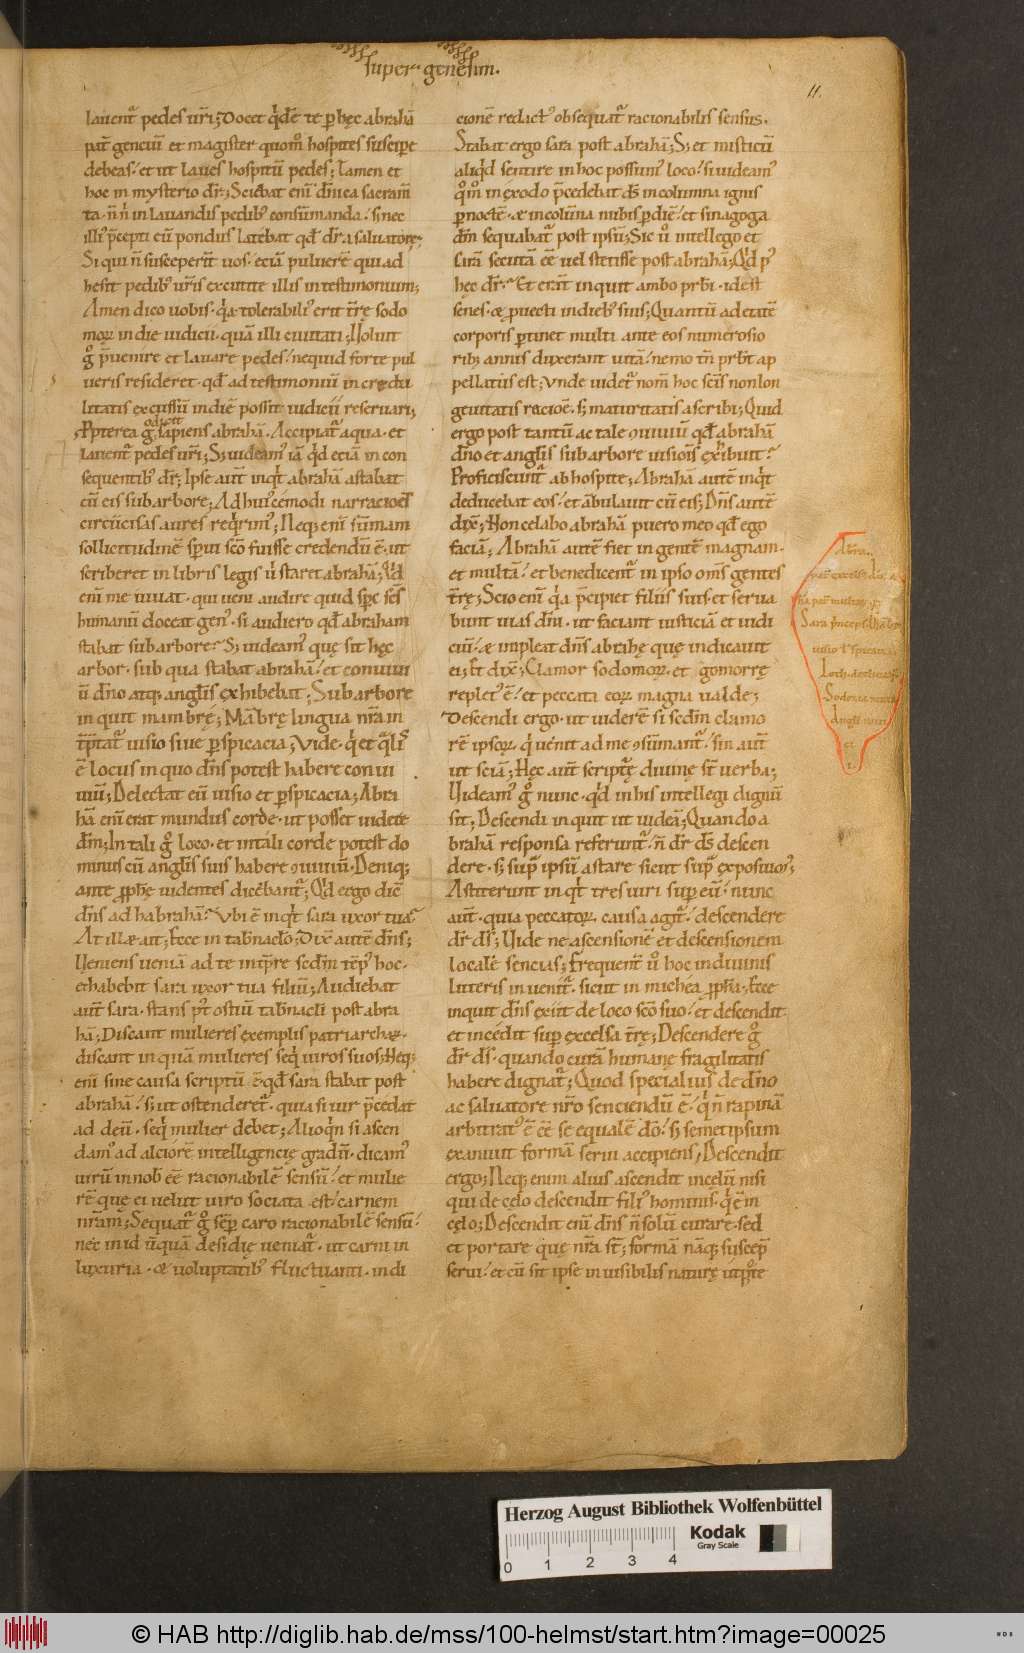 super genesim.
11.
lauent᷑ pedes ur̄i; Docet qͥdē te p hęc abrahā
pat̄ gentiū et magister quom̊ hospites suscipe
debeas. et ut laues hospitū pedes; Tamen et
hoc in mysterio dr̄; Sciebat eni᷑ dn̄ica sacram̄
ta. n̄ n̄ in lauandis pedibꝰ consūmanda. si nec
illiꝰ p̄cepti eū pondus latebat qd̄ dr̄ a saluatore;
Si qui n̄ susceperit̄ uos. eciā puluerē qui ad
hesit pedibꝰ ur̄is excutite illis in testimonium;
Amen dico uobis. qͥa tolerabiliꝰ erit tr̄rę sodo
moꝝ in die iudicii. quā illi ciuitati; Uoluit
g̊ p̄uenire et lauare pedes. nequid forte pul
ueris resideret. qd̄ ad testimoniū in credu
litatis excussū in diē possit iudicii reseruari;
Ꝓpterea g̊ sapiens abrahā. Accipiat᷑ aqua. et
lauent᷑ pedes ur̄i; S; uideamꝰ iā qͥd eciā in con
sequentibꝰ dr̄; Ipse aut̄ inqͥt abrahā astabat
cū eis sub arbore; Ad huiꝰcemodi narracioēs
circūcisas aures reqͥrimꝰ; Neq; eni᷑ sūmam
sollicitudinē sp̄ui sc̄o fuisse credendū ē. ut
scriberet in libris legis u̇ staret abrahā; Qͥd
eni᷑ me iuuat. qui ueni audire quid sp̄c sc̄s
humanū doceat genꝰ. si audiero qd̄ abraham
stabat sub arbore? S; uideamꝰ quę sit hęc
arbor. sub qua stabat abrahā. et conuiui
ū dn̄o atq; anglis exhibebat; Sub arbore
in quit mambrę; Mābrę lingua nr̄a in
t̄p̄tat᷑ uisio siue pspicacia; Vide. qͥ et qͣliꝰ
ē locus in quo dn̄s potest habere conui
uiū; Delectat eū uisio et pspicacia; Abra
hā eni᷑ erat mundus corde. ut posset uidere
dm̄; In tali g̊ loco. et in tali corde potest do
minus cū anglis suis habere ꝯuiuiū. Deniq;
ante ꝓphę uidentes dicebant᷑; Qͥd ergo dic̄
dn̄s ad habrahā? Vbi ē inqͥt sara uxor tua?
At ille ait; Ecce in tabn̄aclo; Dixͭ autē dn̄s;
Ueniens ueniā ad te in tp̄re sedm̄ tēpꝰ hoc.
et habebit sara uxor tua filiū; Audiebat
aut̄ sara. stans p̊t ostiū tabn̄acli post abra
hā; Discant mulieres exemplis patriarchaꝝ.
discant in quā mulieres seqͥ uiros suos; Neq;
eni᷑ sine causa scriptū ē qd̄ sara stabat post
abrahā. s; ut ostenderet᷑. quia si uir p̄cedat
ad deū. seqͥ mulier debet; Alioqͥn si ascen
damꝰ ad alciorē intelligencię gradū. dicamꝰ
uirū in nob̄ eē racionabilē sensū. et mulie
rē que ei uelut uiro sociata est. carnem
nr̄am; Sequat᷑ g̊ sēp caro racionabilē sensū.
nec in id ūquā desidię ueniat᷑. ut carni in
luxuria. æ uoluptatibꝰ fluctuanti. in di
cionē redactꝰ obsequat᷑ racionabilis sensus.
Stabat ergo sara post abrahā; S; et misticū
aliqͥd sentire in hoc possumꝰ loco. si uideamꝰ
qͦm̊ in exodo p̄cedebat ds̄ in columna ignis
p noctē. æ in colūna nubis p diē. et sinagoga
dm̄ sequebat᷑ post ipsū; Sic u̇ intellego et
sarā secutā eē uel stetisse post abrahā; Qͥd pꝰ
hęc dr̄? Et erant̄ in quit ambo prb̄i. id est
senes. æ ꝓuecti in diebꝰ suis; Quantū ad etatē
corporis ptinet multi ante eos numerosio
ribꝫ annis duxerant uitā. nemo tn̄ prb̄t ap
pellatus est; Vnde uidet᷑ nom̄ hoc senis non lon
geuitatis racioē. s; maturitatis ascribi; Quid
ergo post tantū ac tale ꝯuiuiū qd̄ abrahā
dn̄o et anglis sub arbore uisiois exͪibuit?
Proficiscunt᷑ ab hospite; Abrahā autē inqͥt
deducebat eos. et ābulauit cū eis; Dn̄s autē
dixͭ; Non celabo abrahā puero meo qd̄ ego
faciā; Abrahā autē fiet in gentē magnam.
et multā. et benedicent᷑ in ipso om̄s gentes
tr̄rę; Scio eni᷑ qͥa p̄cipiet filiis suis. et serua
bunt uias dn̄i. ut faciant iusticiā et iudi
ciū. æ impleat dn̄s abrahę quę indicauit
ei; Et dixͭ; Clamor sodomoꝝ. et gomorrę
repletꝰ ē. et peccata eoꝝ magna ualde;
Descendi ergo. ut uiderē si sedm̄ clamo
rē ipsoꝝ. qͥ uenit ad me ꝯsūmant᷑. sin aut̄
ut sciā; Hęc aut̄ scripturę diuinę st̄ uerba;
Uideamꝰ g̊ nunc. qͥd in his intellegi dignū
sit; Descendi in quit ut uideā; Quando a
brahā responsa referunt᷑. n̄ dr̄ ds̄ descen
dere. s; supͣ ipsū astare sicut supͣ exposuimꝰ;
Astiterunt in qͥt tres uiri sup eū. nunc
aut̄. quia peccatoꝝ causa agit᷑. descendere
dr̄ ds̄; Uide ne ascensionē et descensionem
localē sencias; Frequent᷑ u̇ hoc in diuinis
litteris in uenit᷑. sicut in michea ꝓpha. Ecce
inquit dn̄s exiit de loco sc̄o suo. et descendit
et incedit sup excelsa tr̄rę; Descendere g̊
dr̄ ds̄. quando curā humanę fragilitatis
habere dignat᷑; Quod specialius de dn̄o
ac saluatore nr̄o senciendū ē. qͥ n̄ rapinā
arbitratꝰ ē eē se equalē do̅. s; semetipsum
exaniuit formā serui accipiens; Descendit
ergo; Neq; enim alius ascendit in celū nisi
qui de celo descendit filiꝰ hominis. qͥ ē in
cęlo; Descendit eni᷑ dn̄s n̄ solū curare. sed
et portare quę nr̄a st̄; formā nāq; suscep̄
serui. et cū sit ipse in uisibilis naturę ut pͦte
Sara princeps
uisio
Loth. declinās
Sodoma
Angli
Herzog August Bibliothek Wolfenbüttel
Kodak
Gray Scale
0 1 2 3 4
© HAB http://diglib.hab.de/mss/100-helmst/start.htm?image=00025